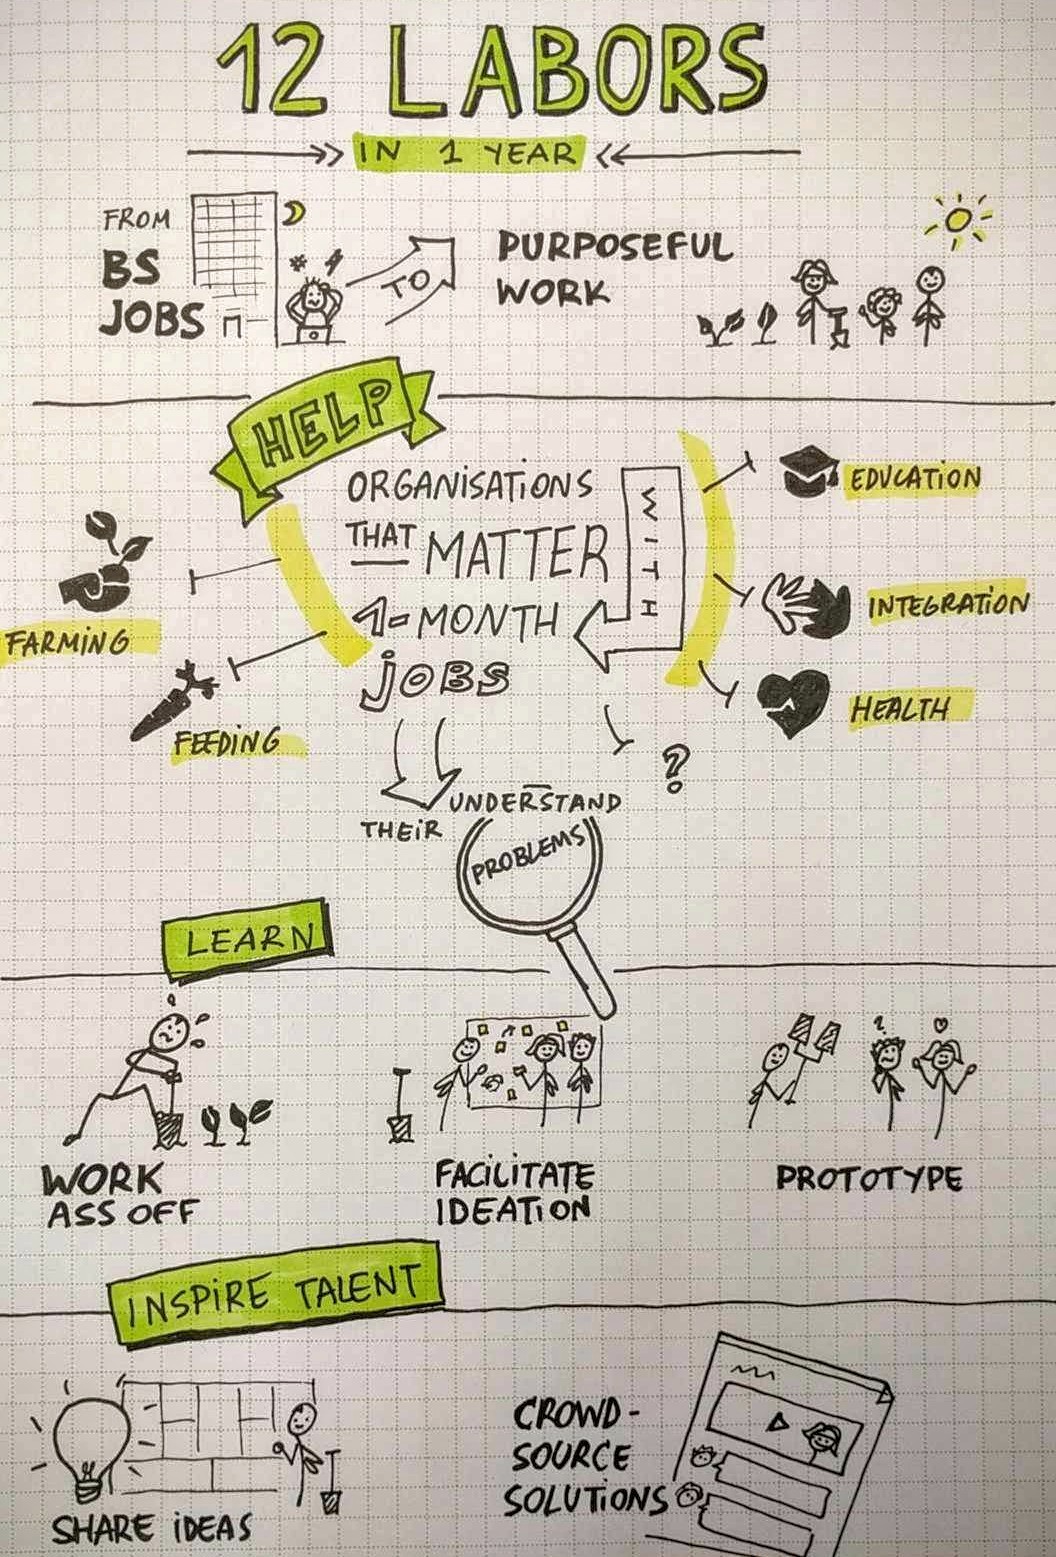 12 LABORS
IN 1 YEAR
FROM
BS
JOBS
TO
PURPOSEFUL
WORK
HELP
ORGANISATIONS
THAT MATTER
WITH
1-MONTH
JOBS
FARMING
FEEDING
EDUCATION
INTEGRATION
HEALTH
?
UNDERSTAND
THEIR
PROBLEMS
LEARN
WORK
ASS OFF
FACILITATE
IDEATION
?
PROTOTYPE
INSPIRE TALENT
SHARE IDEAS
CROWD-
SOURCE
SOLUTIONS